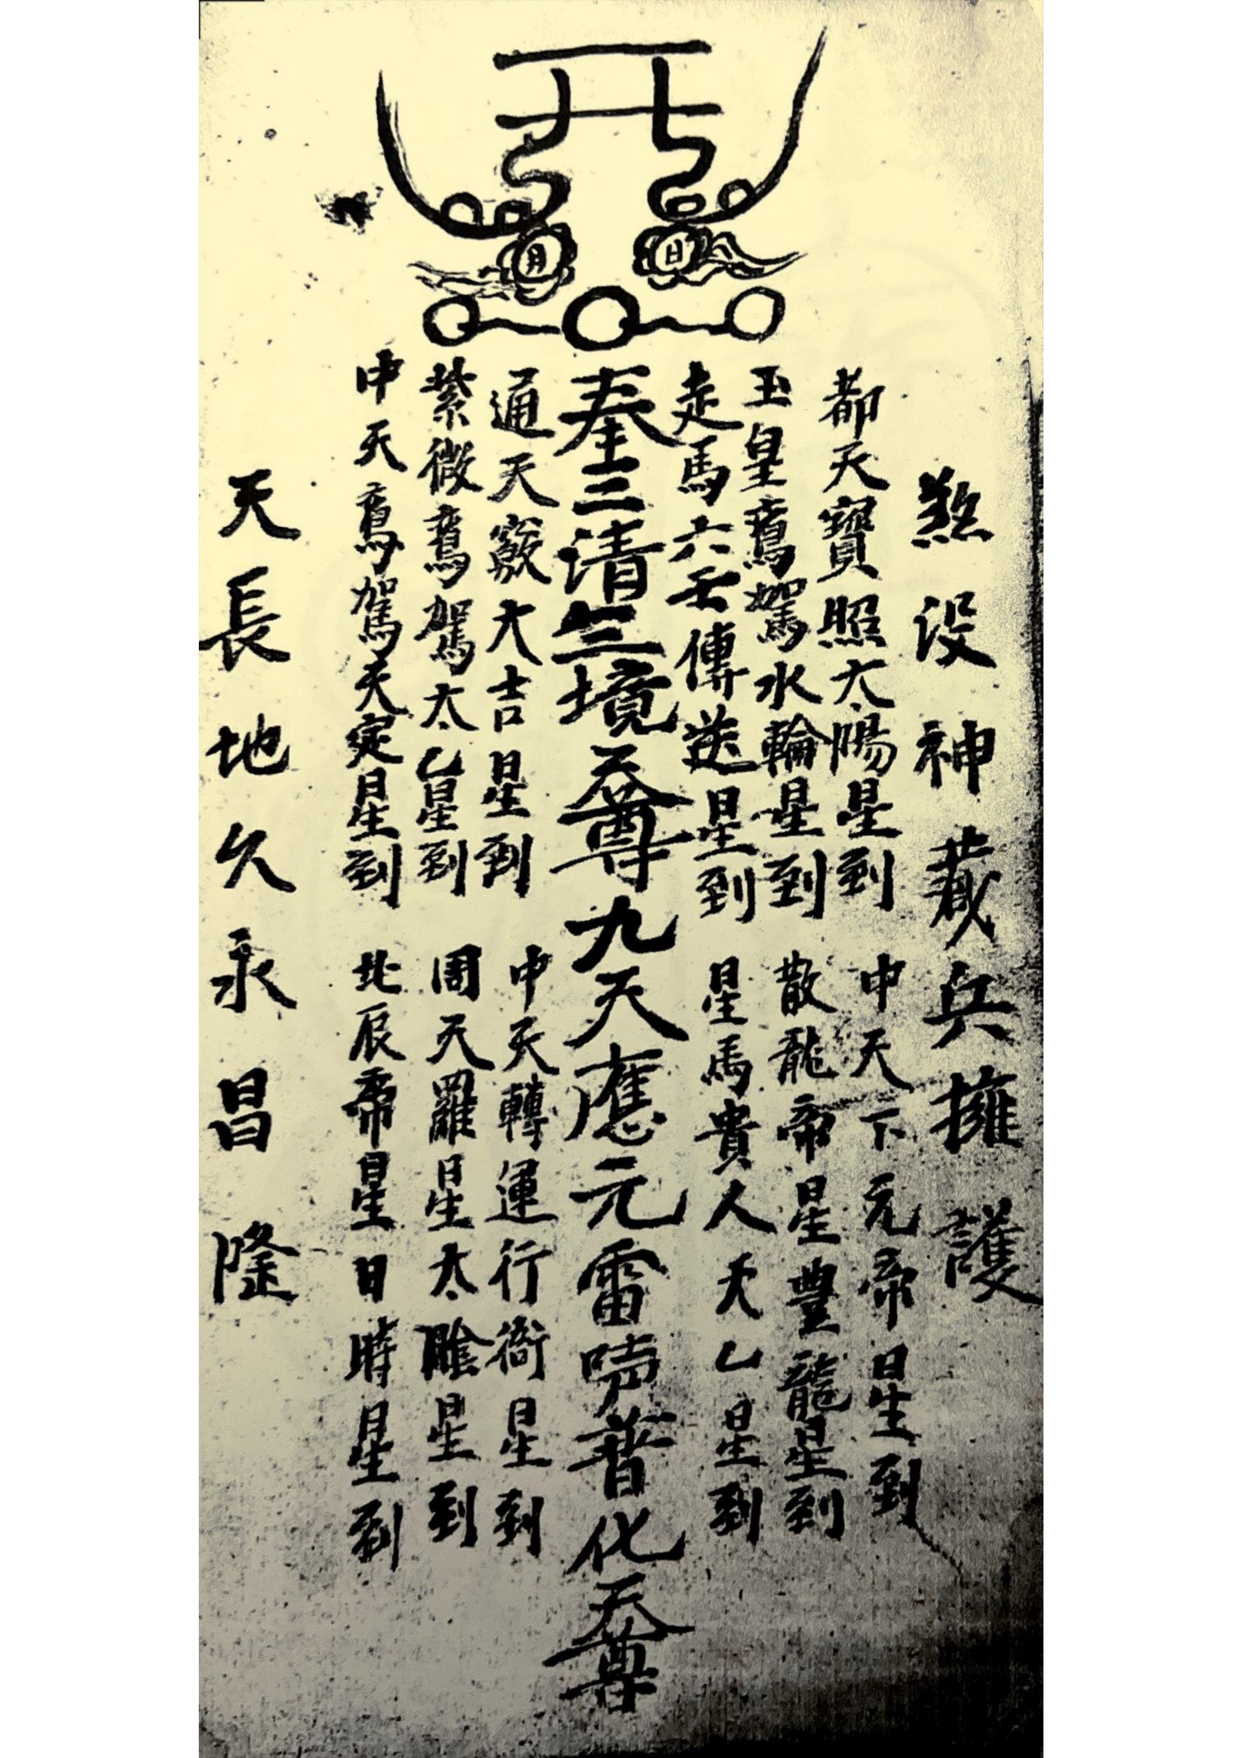 煞没神藏兵擁護
都天寶照太陽星到
中天下元帝星到
玉皇鸞駕水輪星到
散龍帝星豊龍星到
走馬六壬傳送星到
星馬貴人天乙星到
月 日
奉三清三境天尊九天應元雷声普化天尊
通天竅大吉星到
中天轉運行衙星到
紫微鸞駕太乙星到
周天羅星太陰星到
中天鸞駕天定星到
北辰帝星日時星到
天長地久永昌隆